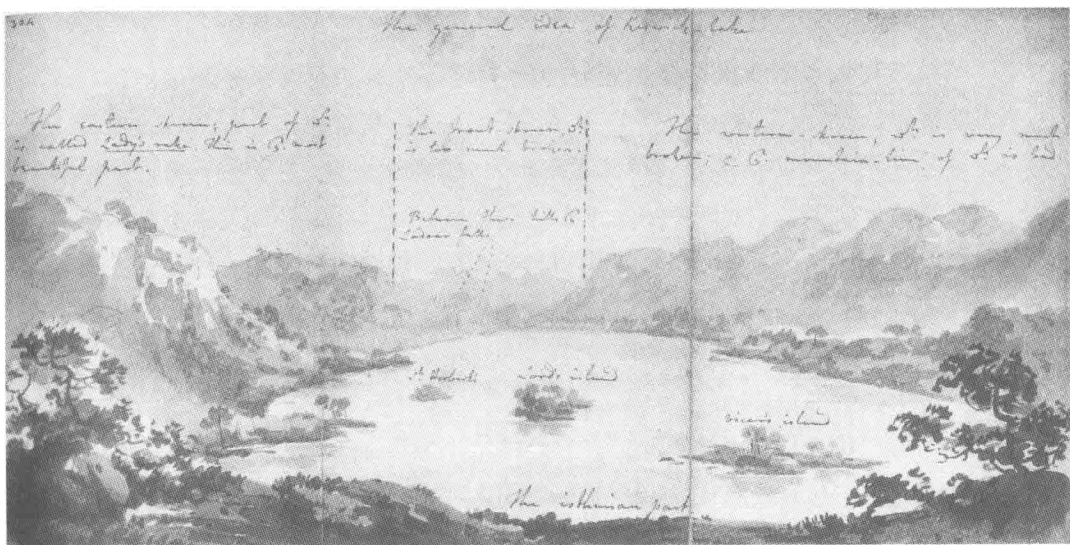 304
The general idea of Keswick-lake
The eastern-skreen; part of it
is called Lady's-rake. This is the most
beautiful part.
The front skreen, it
is too much broken.
Between these hills the
Lodoar falls
The western-skreen; it is very much
broken; & the mountain-line of it is bad
St. Herbert's
Lord's island
Vicar's island
The isthmian part